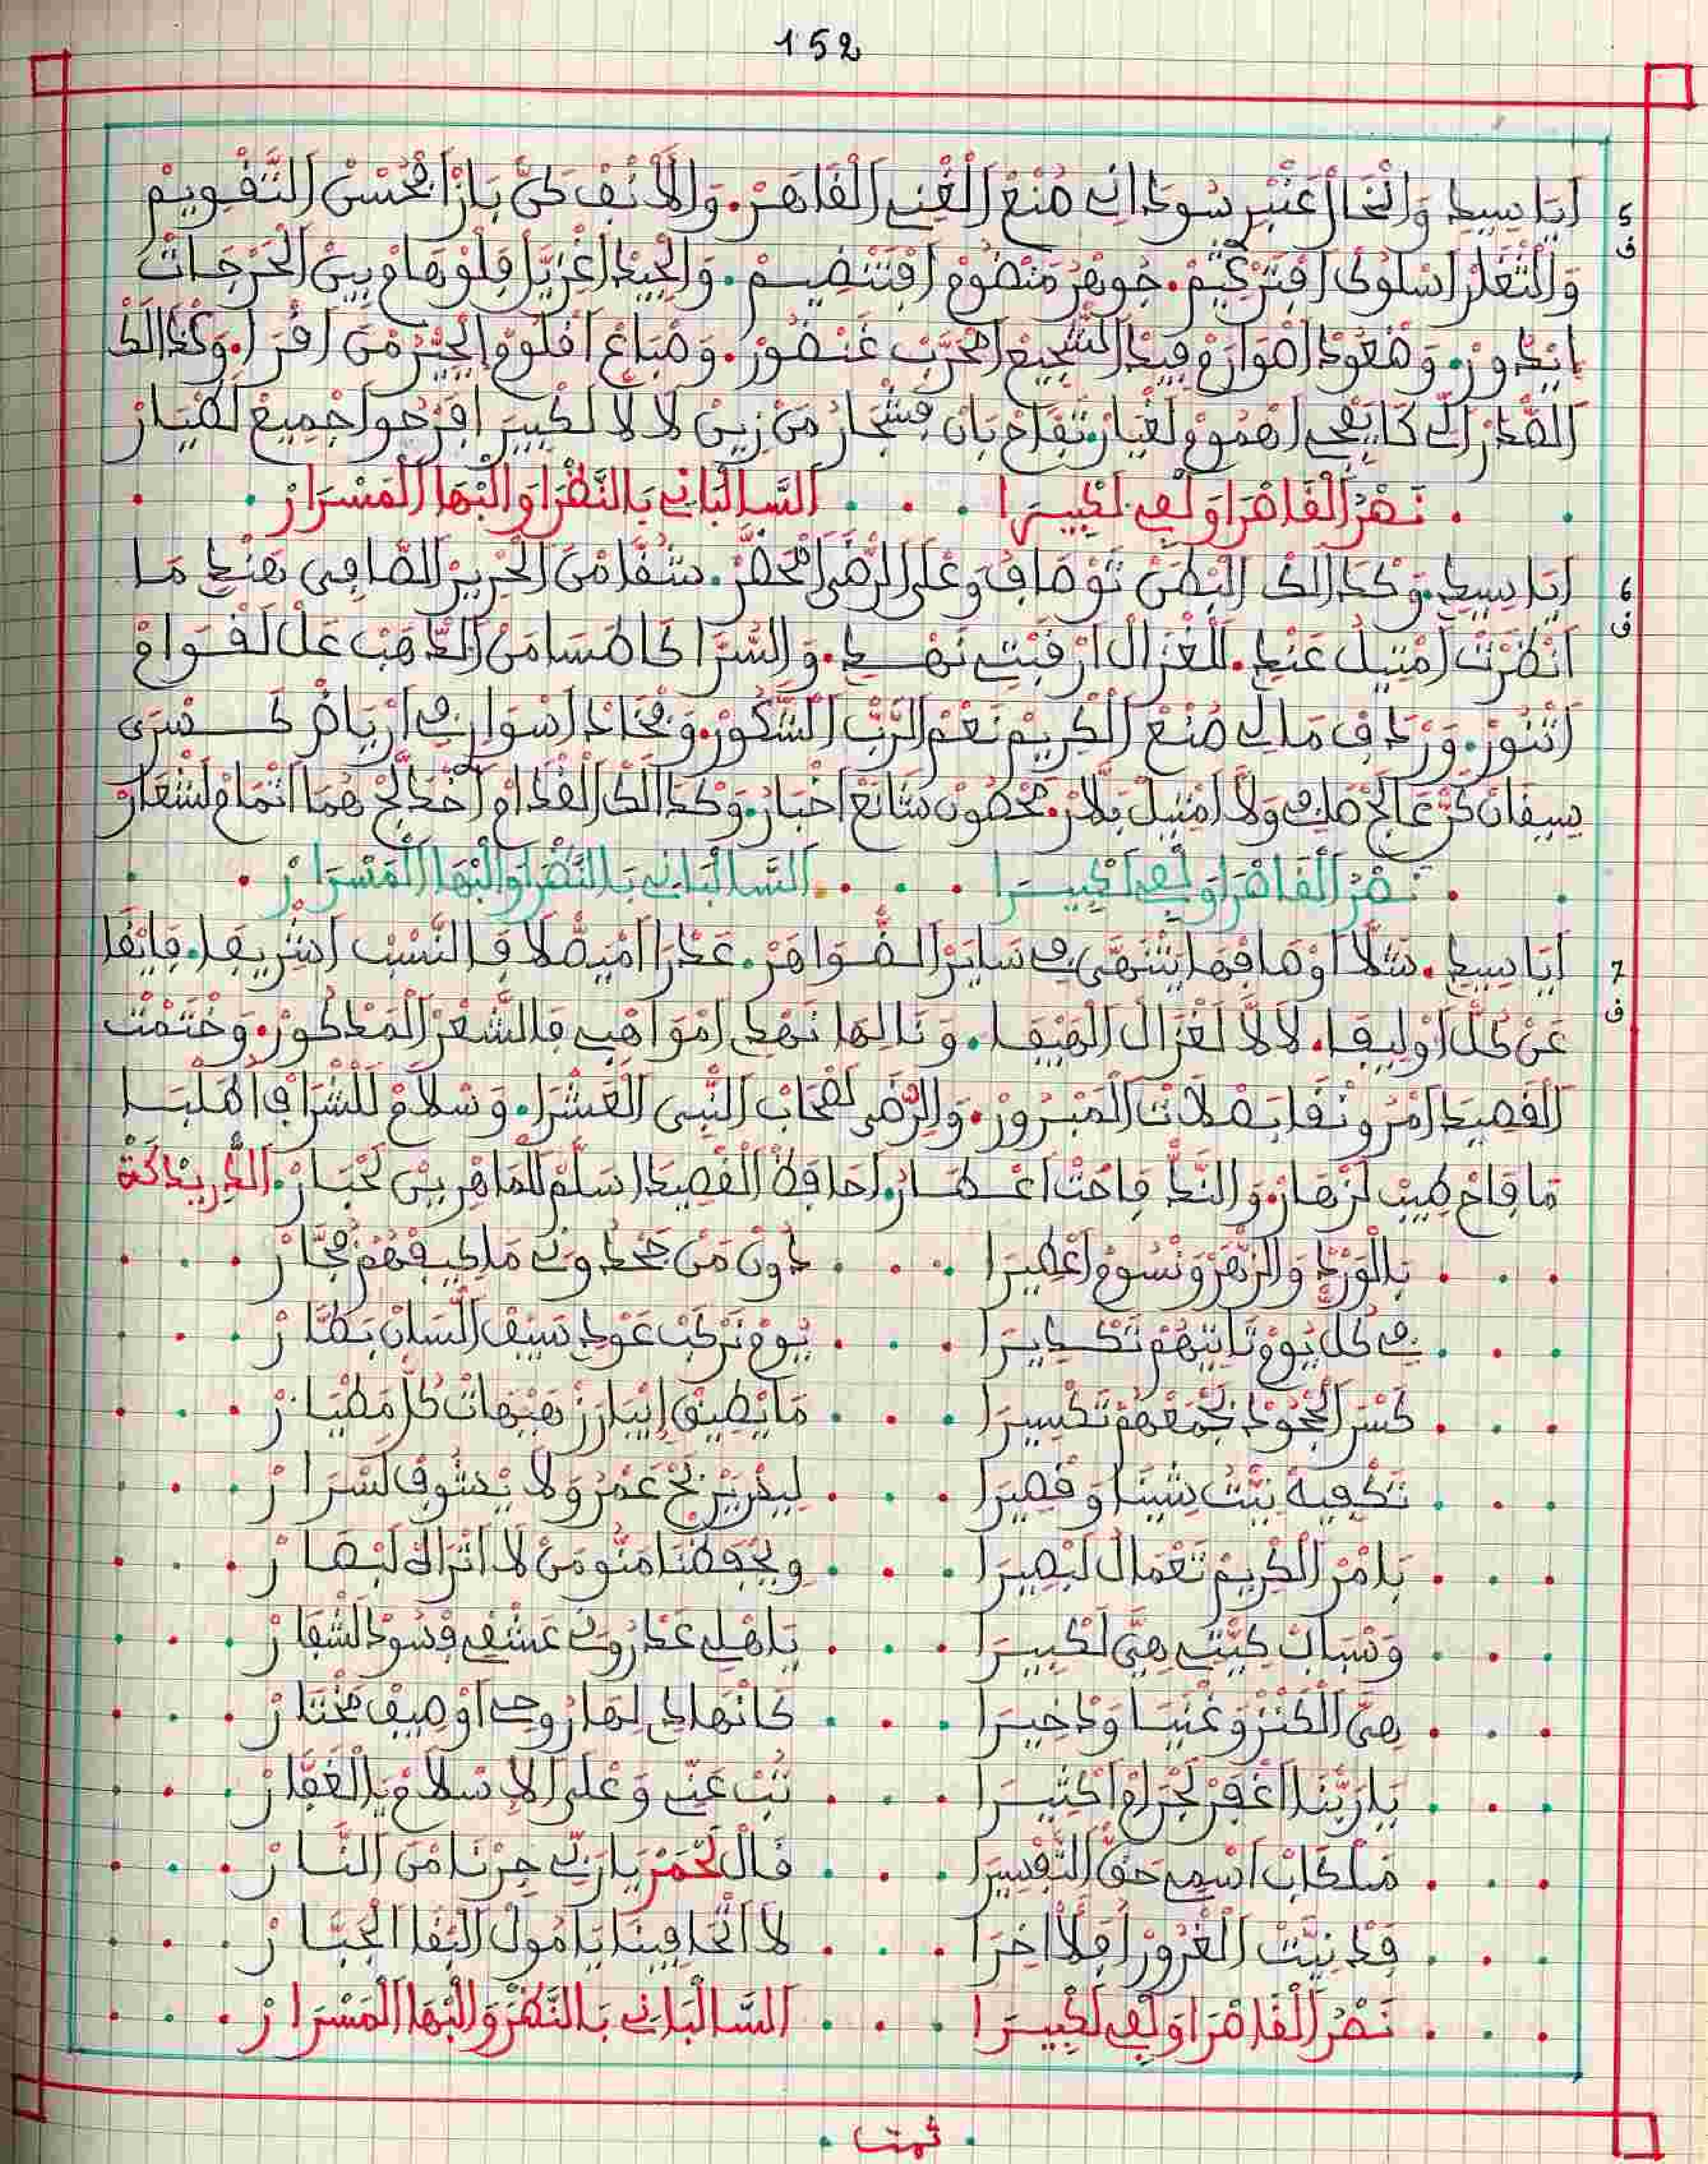 152
5 أَيَا سِيدِي وَالْخَالْ عَنْبْرِ سُودَانِي صُنْعْ الْغْنِي الْقَاهَرْ. وَالْأَنْفْ كَنْ بَازْ أَمْحُسْنْ التَّقْوِيمْ
ف وَالثَّغْرْ اسْلُوكْ افْتَرْكِيمْ. جُوهَرْ مَنْضُومْ افْتَنْضِيمْ. وَالْجِيدْ اغْزِيَّلْ فَلُوهَامْ بِينْ الْحَرْجَاتْ
ايْدُورْ. وَصْعُودْ اصْوَارَمْ فِيدْ الشّْجِيعْ امْحَرَّبْ غَنْضُورْ. وَصْبَاعْ اقْلُومْ الْحِبْرْ مَنْ اقْرَا. وَكْذَالَكْ
الصّْدَرْ الِّي كَا يَفْجِي اهْمُومْ لَغْيَارْ. تَفَّاحْ بَانْ فَشْجَارُ مَنْ زِينْ لَالَّا لَكْبِيرَ افَرْحُوا جْمِيعْ لَصْيَارْ
نَصْرُ الْقَاصْرَا وَلْفِي لَكْبِيرَا . . . السَّالْبَانِي بَالنَّظْرَا وَالْبْهَا الْمَسْرَارْ
6 أَيَا سِيدِي. وَكْذَالَكْ الْبْطَنْ تَوْصَافُ وَعْلَى الرّْضَى امْحَضَّرْ. شُقَّا مَنْ الْحْرِيرْ الصَّافِي هَنْدِي مَا
ف انْظَرْتْ امْتِيلْ عَنْدِي. لَلْغْزَالْ ارْقِيتِي نَهْدِي. وَالسُّرَّا طَاسَا مَنْ الذّْهَبْ عَلْ لَقْوَامْ
اتْنُورْ. وَرْدَافْ مَالِي صُنْعْ الْكْرِيمْ نَعْمْ الرَّبّْ الشَّكُورْ. وَفْخَادْ اسْوَارِي فِي ارْيَاضْ كَسْرَى
سِيقَانْ كَنّْ عَاجْ صَكِّي وَلَّا امْتِيلْ بَلَّارْ. مَحْصُونْ شَايَعْ اخْبَارْ. وَكْذَالَكْ الْقْدَامْ اخْدَلَّجْ هُمَا اتْمَامْ لَشْعَارْ
نَصْرُ الْقَاصْرَا وَلْفِي لَكْبِيرَا . . . السَّالْبَانِي بَالنَّظْرَا وَالْبْهَا الْمَسْرَارْ
7 أَيَا سِيدِي. شَلَّا أَوْصَافْهَا يَتْنَهَّى فِي سَايَرْ الضّْوَاهَرْ. عَدْرَا امْيَصْلَا فَالنّْسَبْ اشْرِيفَا. فَايْقَا
ف عَنْ كُلّْ اوْلِيفَا. لَالَّا لَغْزَالْ الْهِيفَا. وَنَالِهَا نَهْدِي امْوَاهْبِي فَالشّْعَرْ الْمَذْكُورْ. وَخْتَمْتْ
الْقْصِيدْ امْرُونْقَا بَصْلَاتْ الْمَبْرُورْ. وَالرّْضَى لَصْحَابْ النّْبِي الْعَشْرَا. وَسْلَامْ لَلشّْرَافْ أَهْلْ لَبْـا
مَا فَاحْ طِيبْ لَزْهَارْ. وَالنَّدّْ فَاحْتْ اعْطَارُ. أَحَافَظْ الْقْصِيدْ سَلَّمْ لَلْمَاهْرِينْ لَحْبَارْ. الدّْرِيدَكَةْ
بَالْوَرْدْ وَالزّْهَرْ وَنْسُومْ اعْطِيرَا . . . دُونْ مَنْ جَحْدُونِي مَا كِيفْهُمْ فُجَّارْ
فِي كُلّْ يُومْ تَاتِيهُمْ تَكْدِيرَا . . . يُومْ نَرْكَبْ عَوْدِي سِيفْ اللّْسَانْ بَطَّارْ
كَسْرْ الْجْحُودْ لَجْمَعْهُمْ تَكْسِيرَا . . . مَا يْطِيقْ إِيْبَارَزْ هَيْهَاتْ كُلّْ مَطْيَارْ
تَكْفِيهْ نِيّْتُ شِينَا وَقْصِيرَا . . . لِيدْرِيرْ نَحْ عَمْرُ وَلَا يْشُوفْ لَسْرَارْ
بَامْرْ الْكْرِيمْ تَعْمَالْ لَبْصِيرَا . . . وِيحْفَظْنَا مَنُّو مَنْ لَا اتْرَاهْ لَبْصَارْ
وَسْبَابْ كِيّْتِي هِيَّ لَكْبِيرَا . . . يَاهْلِي عَدْرُونِي عَشْقِي فْسُودْ لَشْفَارْ
هِيَّ الْكَنْزْ وَغْنِيَا وَدْخِيرَا . . . كَانْهَادِي لِهَا رُوحِي أَوْصِيفْ مَخْتَارْ
يَا رَبّْنَا اغْفَرْ لَجْرَامْ اكْثِيرَا . . . تُبْ عَنِّي وَعْلَى الْإِسْلَامْ يَالْغَفَّارْ
فَكْتَابْ اسْمِي حَقّْ التَّفْسِيرَا . . . قَالْ لَحْمَرْ يَا رَبِّي جِرْنَا مَنْ النَّارْ
قَدْ نِيّْتْ الْغْرُورْ أَفَلْ اخِرَا . . . لَا اتْحَافِينَا يَا مُولْ الْبْقَا الْجَبَّارْ
نَصْرُ الْقَاصْرَا وَلْفِي لَكْبِيرَا . . . السَّالْبَانِي بَالنَّظْرَ وَالْبْهَا الْمَسْرَارْ
. تمت .